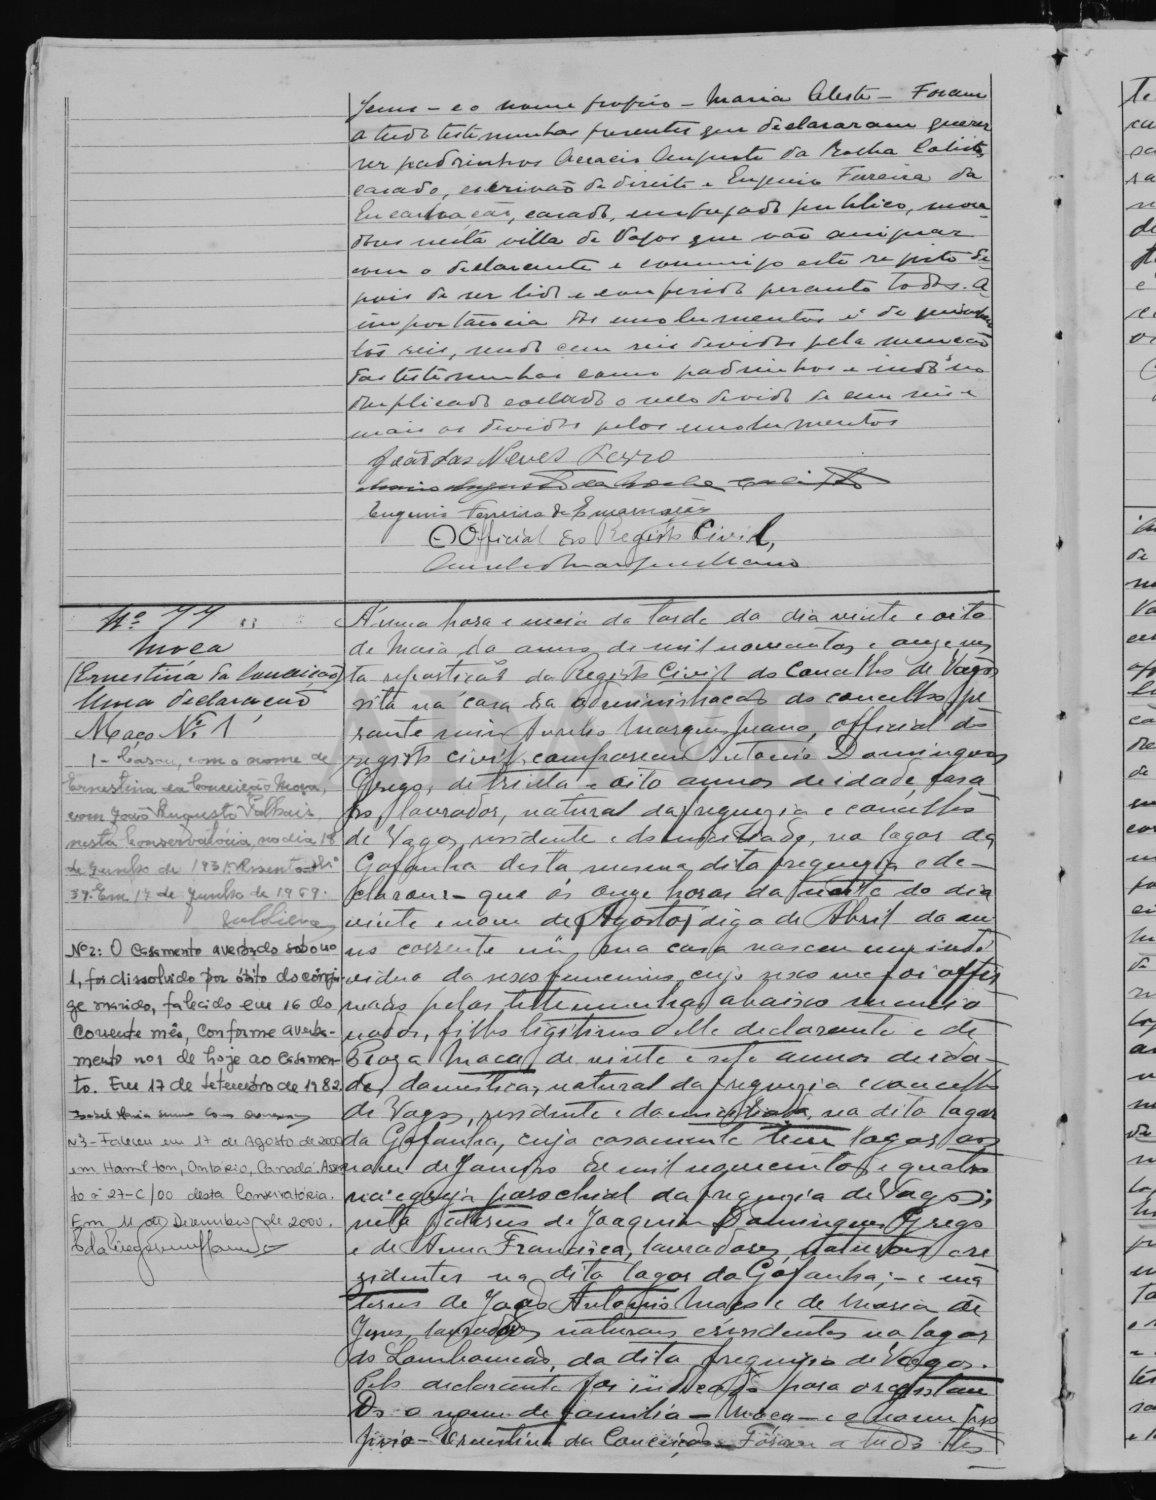 Jesus - e o nome proprio - Maria Celeste - Foram
a tudo testemunhas presentes que declararam querer
ser padrinhos Accacio Augusto da Rocha Calixto,
casado, escrivão de direito e Eugenio Ferreira da
Encarnação, casado, empregado publico, mora-
dores nesta villa de Vagos que vão assignar
com o declarante e commigo este registo de-
pois de ser lido e conferido perante todos. A
importancia dos emolumentos é de quinhen
tos reis, sendo cem reis devidos pela menção
das testemunhas como padrinhos e indo no
duplicado collado o sello devido de cem reis e
mais os devidos pelos emolumentos
João das Neves Ferro
Augusto da Rocha Calixto
Eugenio Ferreira da Encarnação
O Official do Registo Civil,
Nº 77
Moça
(Ernestina da Conceição)
Uma declaração
Maço Nº 1
1 - Casou, com o nome de
Ernestina da Conceição Moça,
com João Augusto
nesta Conservatória, no dia 18
de Junho de 1931. Assento nº
37. Em 17 de Junho de 1969.
Nº 2: O Casamento averbado sob o no
1, foi dissolvido por óbito do cônju-
ge marido, falecido em 16 do
corrente mês, conforme averba-
mento nº 1 de hoje ao casamen-
to. Em 17 de Setembro de 1982
Nº 3 - Faleceu em 17 de Agosto de 2000
em Hamilton, Ontário, Canadá. Assen
to nº 27-C/00 desta Conservatória.
Em 11 de Dezembro de 2000.
Á uma hora e meia da tarde do dia vinte e oito
de Maio do anno de mil novecentos e onze nes
ta repartição do Registo Civil do Concelho de Vagos
sita na casa da administração do concelho pe
rante mim Aurelio Marques Mano, official do
registo civil, compareceu Antonio Domingues
Grego, de trinta e oito annos de idade, casa
do, lavrador, natural da freguezia e concelho
de Vagos, residente e domiciliado, no lagar da
Gafanha desta mesma dita freguezia e de-
clarou - que ás onze horas da noite do dia
vinte e nove de Agosto, digo de Abril do an
no corrente em sua casa nasceu um indi
viduo do sexo femenino, cujo sexo me foi affir
mado pelas testemunhas abaixo mencio
nadas, filho ligitimo delle declarante e de
Roza Moça, de vinte e sete annos de ida-
de, domestica, natural da freguezia e concelho
de Vagos, residente e domiciliada, no dito lagar
da Gafanha, cujo casamento teve lagar aos
nove de Janeiro de mil novecentos e quatro
na egreja parochial da freguezia de Vagos;
neta paterno de Joaquim Domingues Grego
e de Anna Francisca, lavradores, naturaes e re
sidentes no dito lagar da Gafanha; - e ma
terno de João Antonio Moço e de Maria de
Jesus, lavradores, naturaes e residentes no lagar
do Lombomeão, da dita freguezia de Vagos.
Pelo declarante foi indicado para o registan
do o nome de familia - Moça - e o nome pro
prio - Ernestina da Conceição - Foram a tudo tes